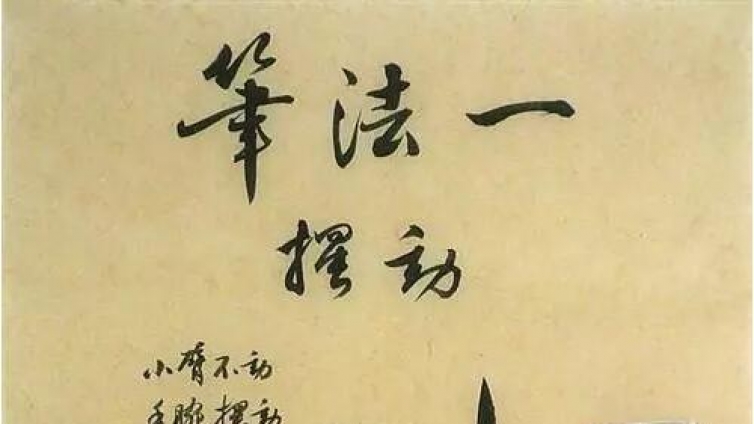 筆法一
擺動
小臂不動
手腕擺動